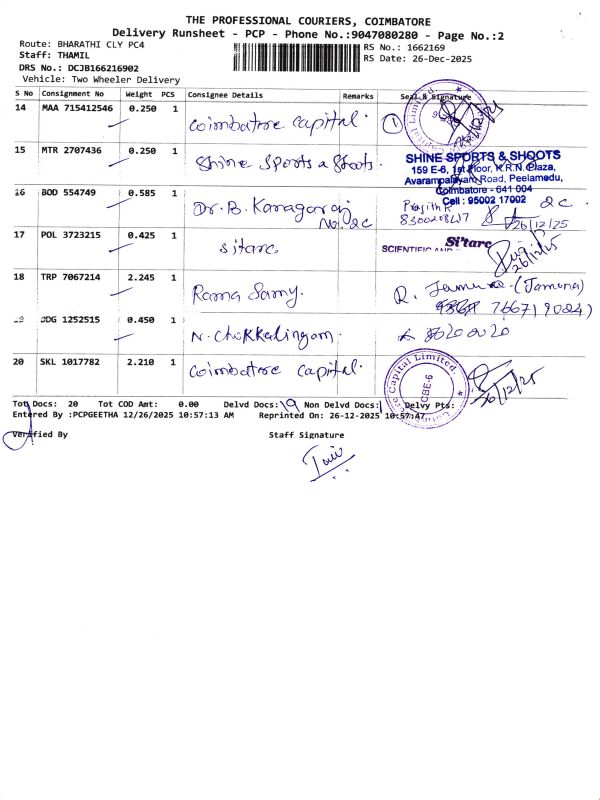 THE PROFESSIONAL COURIERS, COIMBATORE
Delivery Runsheet - PCP - Phone No.:9047080280 - Page No.:2
Route: BHARATHI CLY PC4
RS No.: 1662169
Staff: THAMIL
RS Date: 26-Dec-2025
DRS No.: DCJB166216902
Vehicle: Two Wheeler Delivery
S No Consignment No Weight PCS Consignee Details Remarks Seal & Signature
14 MAA 715412546 0.250 1 Coimbatore capital. 1
15 MTR 2707436 0.250 1 Shine Sports & Shoots.
SHINE SPORTS & SHOOTS
159 E-6, 1st Floor, K.R.N. Plaza,
Avarampalayam Road, Peelamedu,
Coimbatore - 641 004
Cell : 95002 17002
16 BOD 554749 0.585 1 Dr. B. Kanagaraj
No. 2c
2c
26/12/25
17 POL 3723215 0.425 1 Sitarc
Si'tarc
SCIENTIFIC AND
26/12/25
18 TRP 7067214 2.245 1 Rama Samy.
R. Jamuna (Jamuna)
7667190241
19 DDG 1252515 0.450 1 N. Chokkalingam.
20 SKL 1017782 2.210 1 Coimbatore capital.
Capital Limited.
CBE-6
26/12/25
Tot Docs: 20 Tot COD Amt: 0.00 Delvd Docs: 19 Non Delvd Docs: 1 Delvy Pts:
Entered By :PCPGEETHA 12/26/2025 10:57:13 AM Reprinted On: 26-12-2025 10:57:47
Verified By Staff Signature